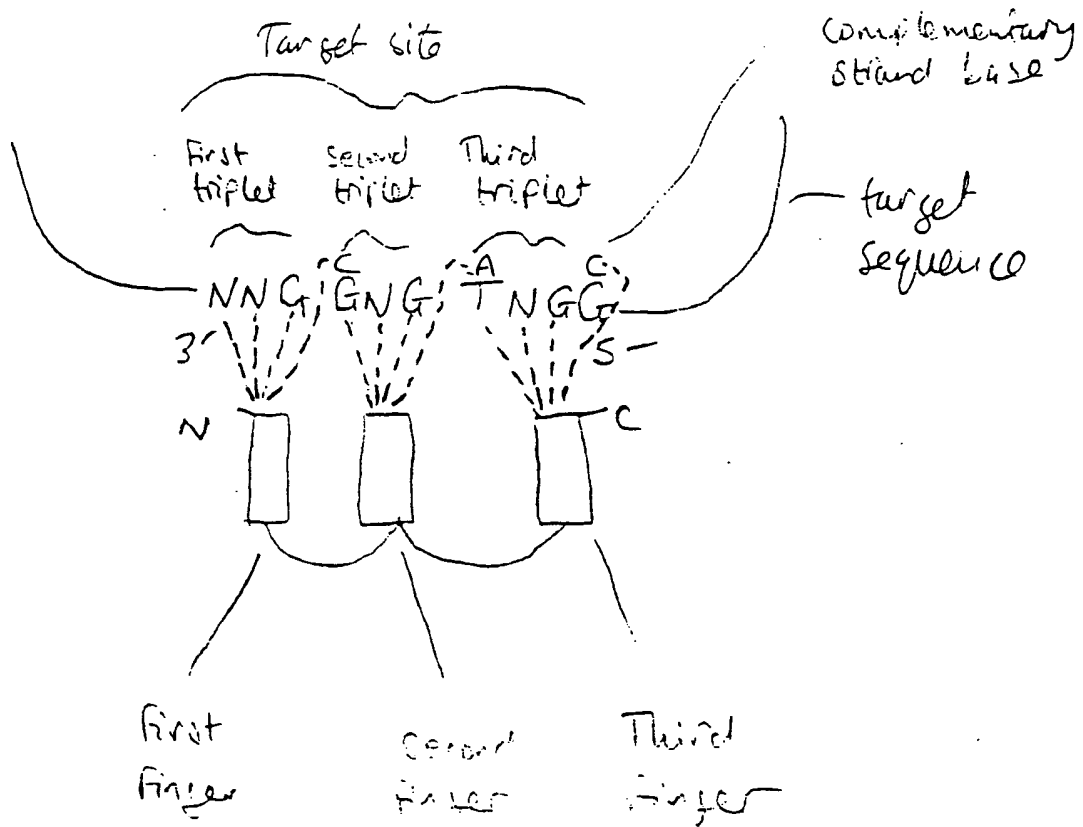 Target site
complementary
strand base
First
triplet
second
triplet
Third
triplet
target
sequence
C A C
NNG GNG TNGG
3' 5
N C
First
Finger
Second
Finger
Third
Finger